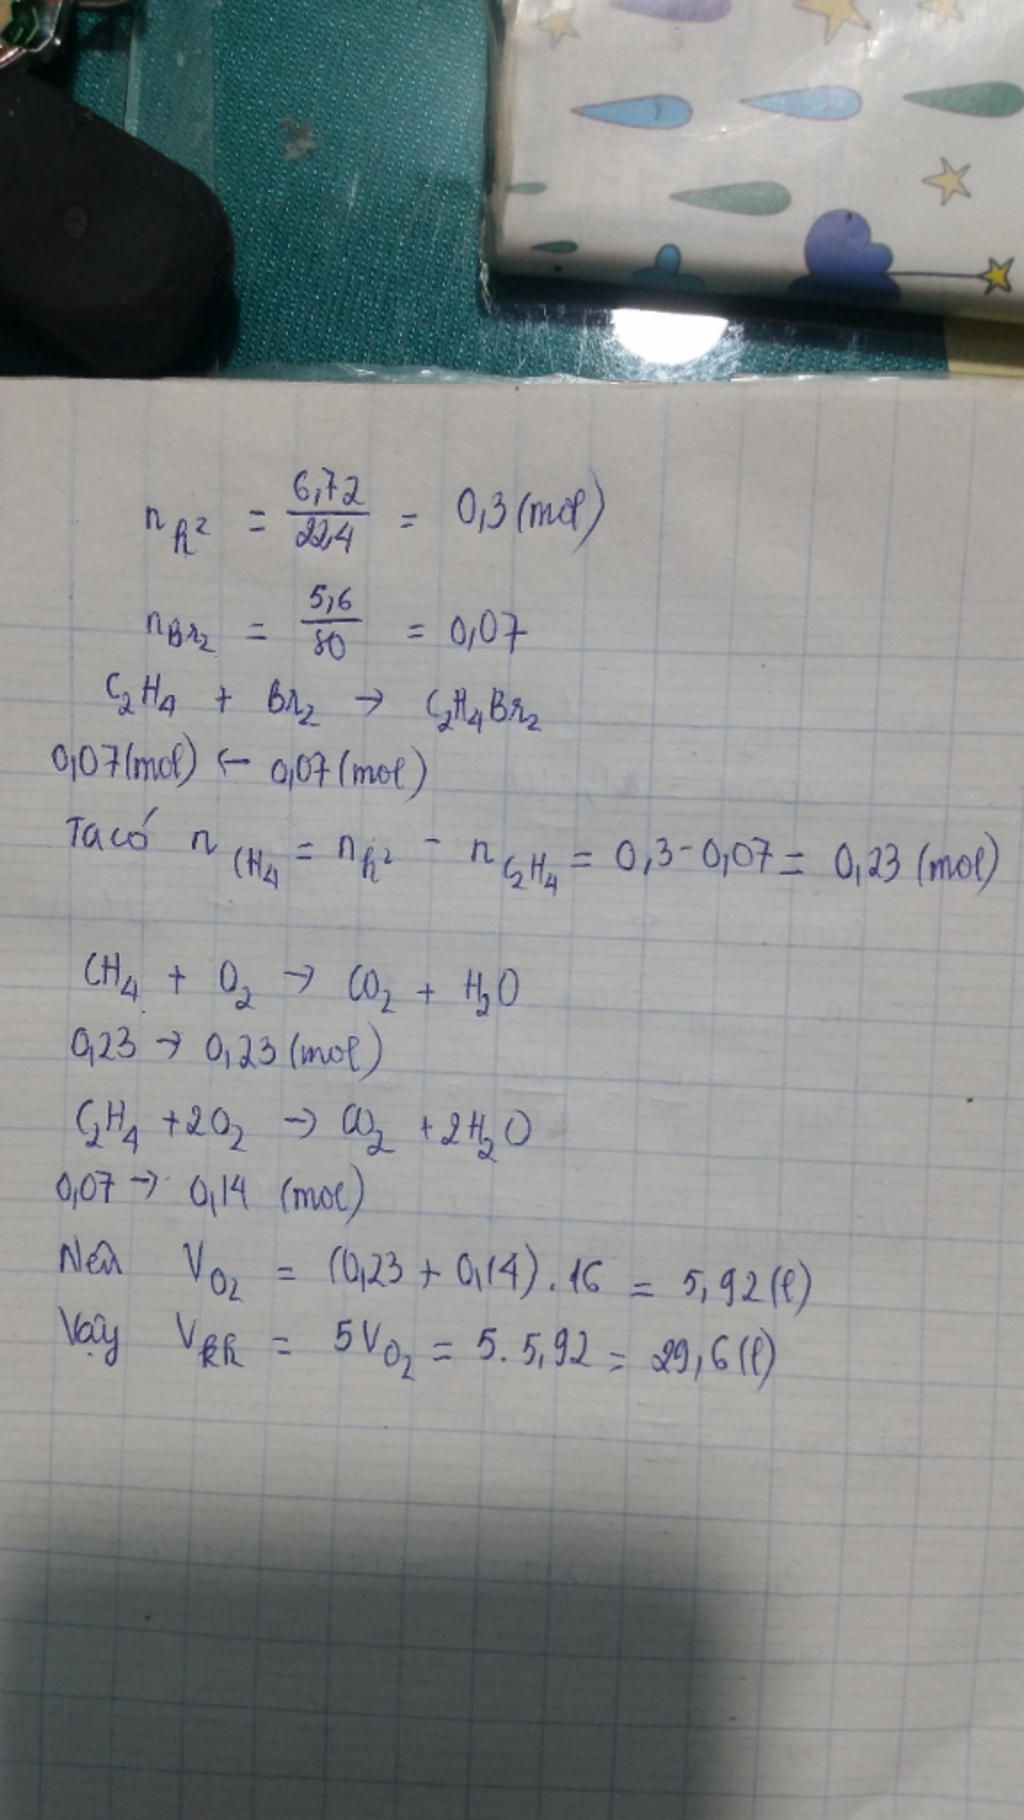 n h² = 6,72 / 22,4 = 0,3 (mol)
n Br₂ = 5,6 / 80 = 0,07
C₂H₄ + Br₂ → C₂H₄Br₂
0,07 (mol) ← 0,07 (mol)
Ta có n CH₄ = n h² - n C₂H₄ = 0,3 - 0,07 = 0,23 (mol)
CH₄ + O₂ → CO₂ + H₂O
0,23 → 0,23 (mol)
C₂H₄ + 2O₂ → CO₂ + 2H₂O
0,07 → 0,14 (mol)
Nên V O₂ = (0,23 + 0,14) . 16 = 5,92 (l)
Vậy V kk = 5V O₂ = 5 . 5,92 = 29,6 (l)